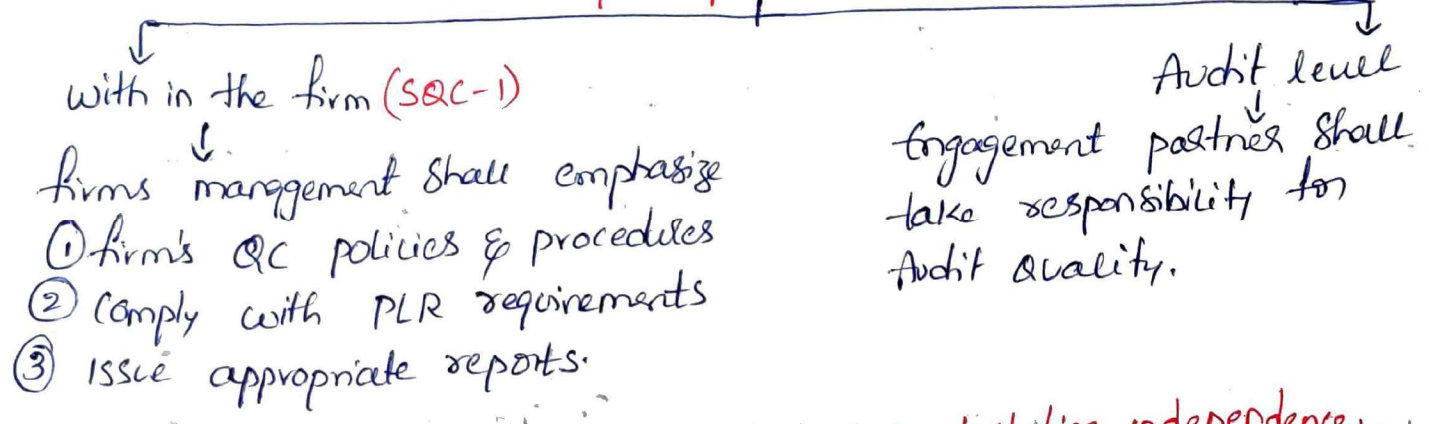 with in the firm (SQC-1)
firms management shall emphasize
① firm's QC policies & procedures
② comply with PLR requirements
③ Issue appropriate reports.
Audit level
Engagement partner shall
take responsibility for
Audit Quality.
independence.